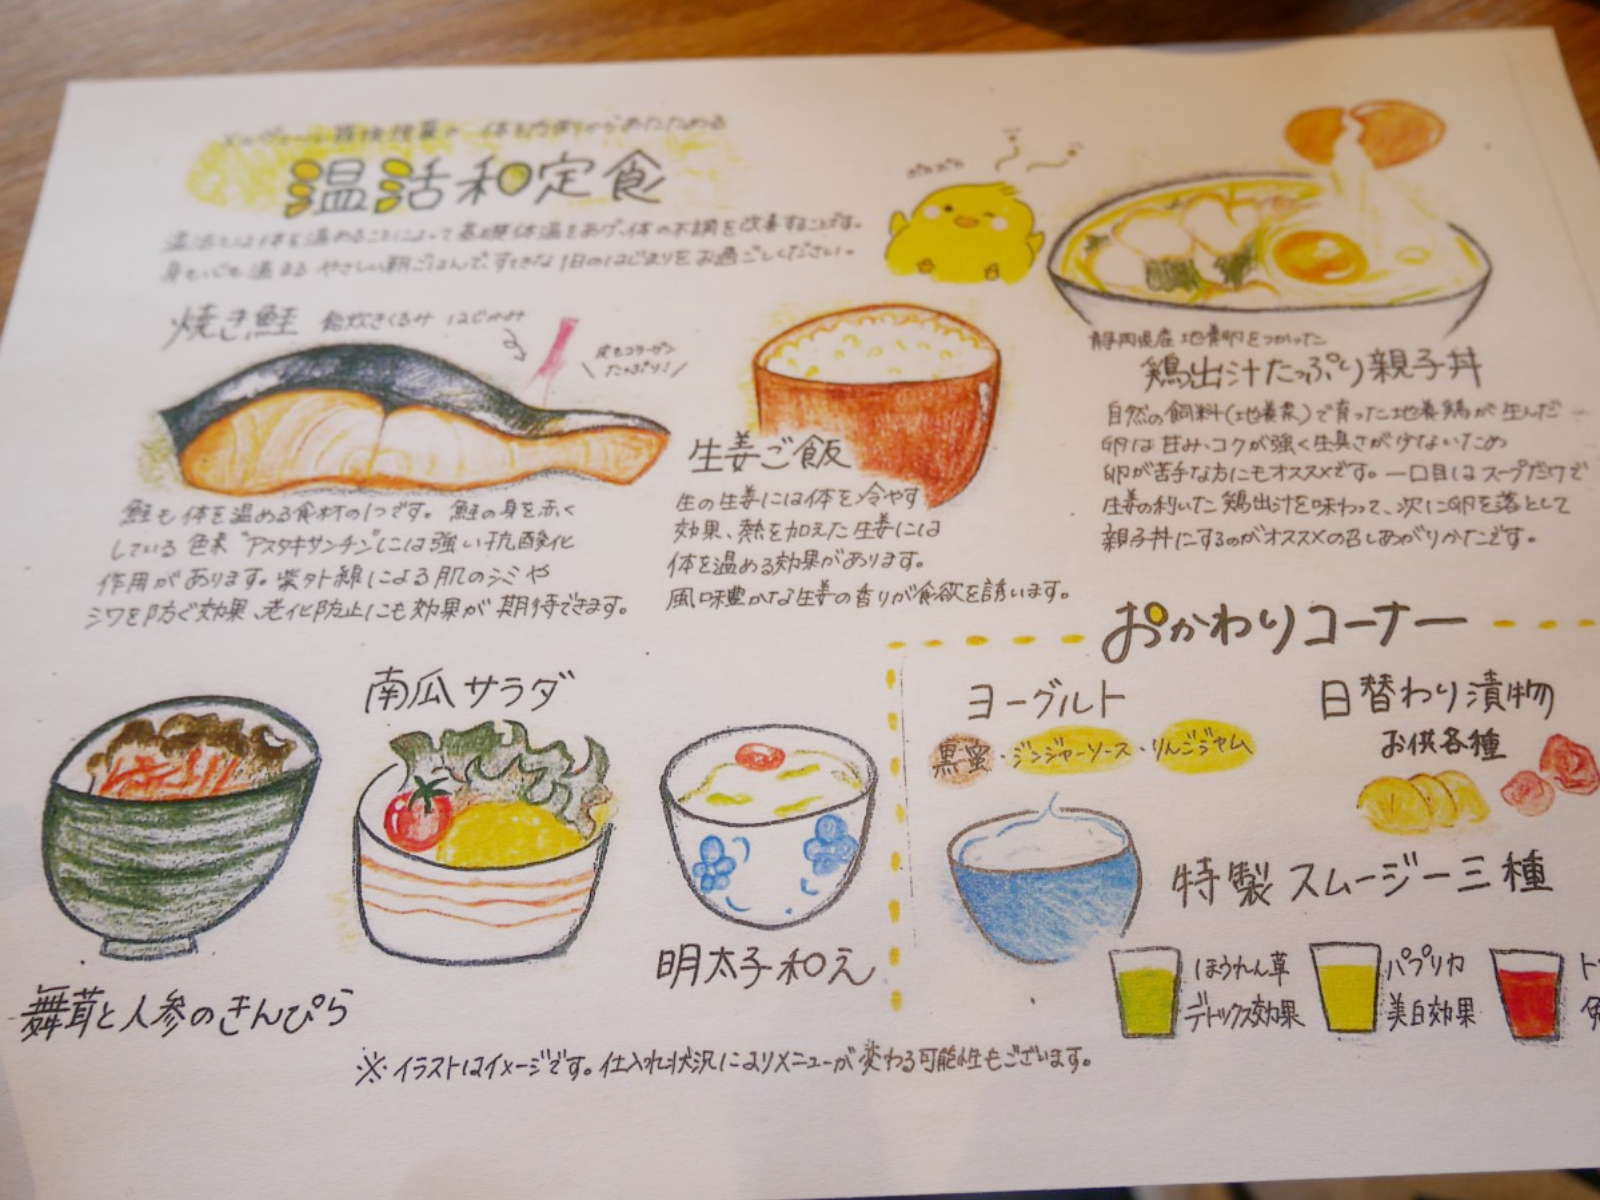 体を内側からあたためる
温活和定食
温活とは体を温めることによって基礎体温をあげ、体の不調を改善することです。
身も心も温まるやさしい朝ごはんで、すてきな1日のはじまりをお過ごしください。
ポカポカ
焼き鮭 飴炊きくるみ はじかみ
皮もコラーゲン
たっぷり!
鮭も体を温める食材の1つです。鮭の身を赤く
している色素"アスタキサンチン"には強い抗酸化
作用があります。紫外線による肌のシミや
シワを防ぐ効果、老化防止にも効果が期待できます。
生姜ご飯
生の生姜には体を冷やす
効果、熱を加えた生姜には
体を温める効果があります。
風味豊かな生姜の香りが食欲を誘います。
静岡県産 地養卵をつかった
鶏出汁たっぷり親子丼
自然の飼料(地養素)で育った地養鶏が生んだ
卵は甘み、コクが強く生臭さが少ないため
卵が苦手な方にもオススメです。一口目はスープだけで
生姜の利いた鶏出汁を味わって、次に卵を落として
親子丼にするのがオススメの召しあがりかたです。
舞茸と人参のきんぴら
南瓜サラダ
明太子和え
おかわりコーナー
ヨーグルト
黒蜜・ジンジャーソース・りんごジャム
日替わり漬物
お供各種
特製スムージー三種
ほうれん草
デトックス効果
パプリカ
美白効果
ト
※イラストはイメージです。仕入れ状況によりメニューが変わる可能性もございます。